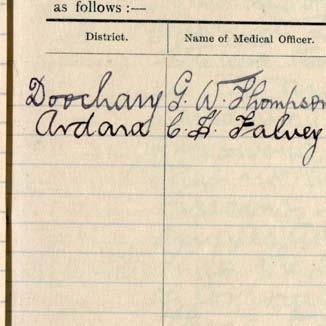 as follows :—
District. Name of Medical Officer.
Doochary G. W. Thompson
Ardara C. H. Falvey